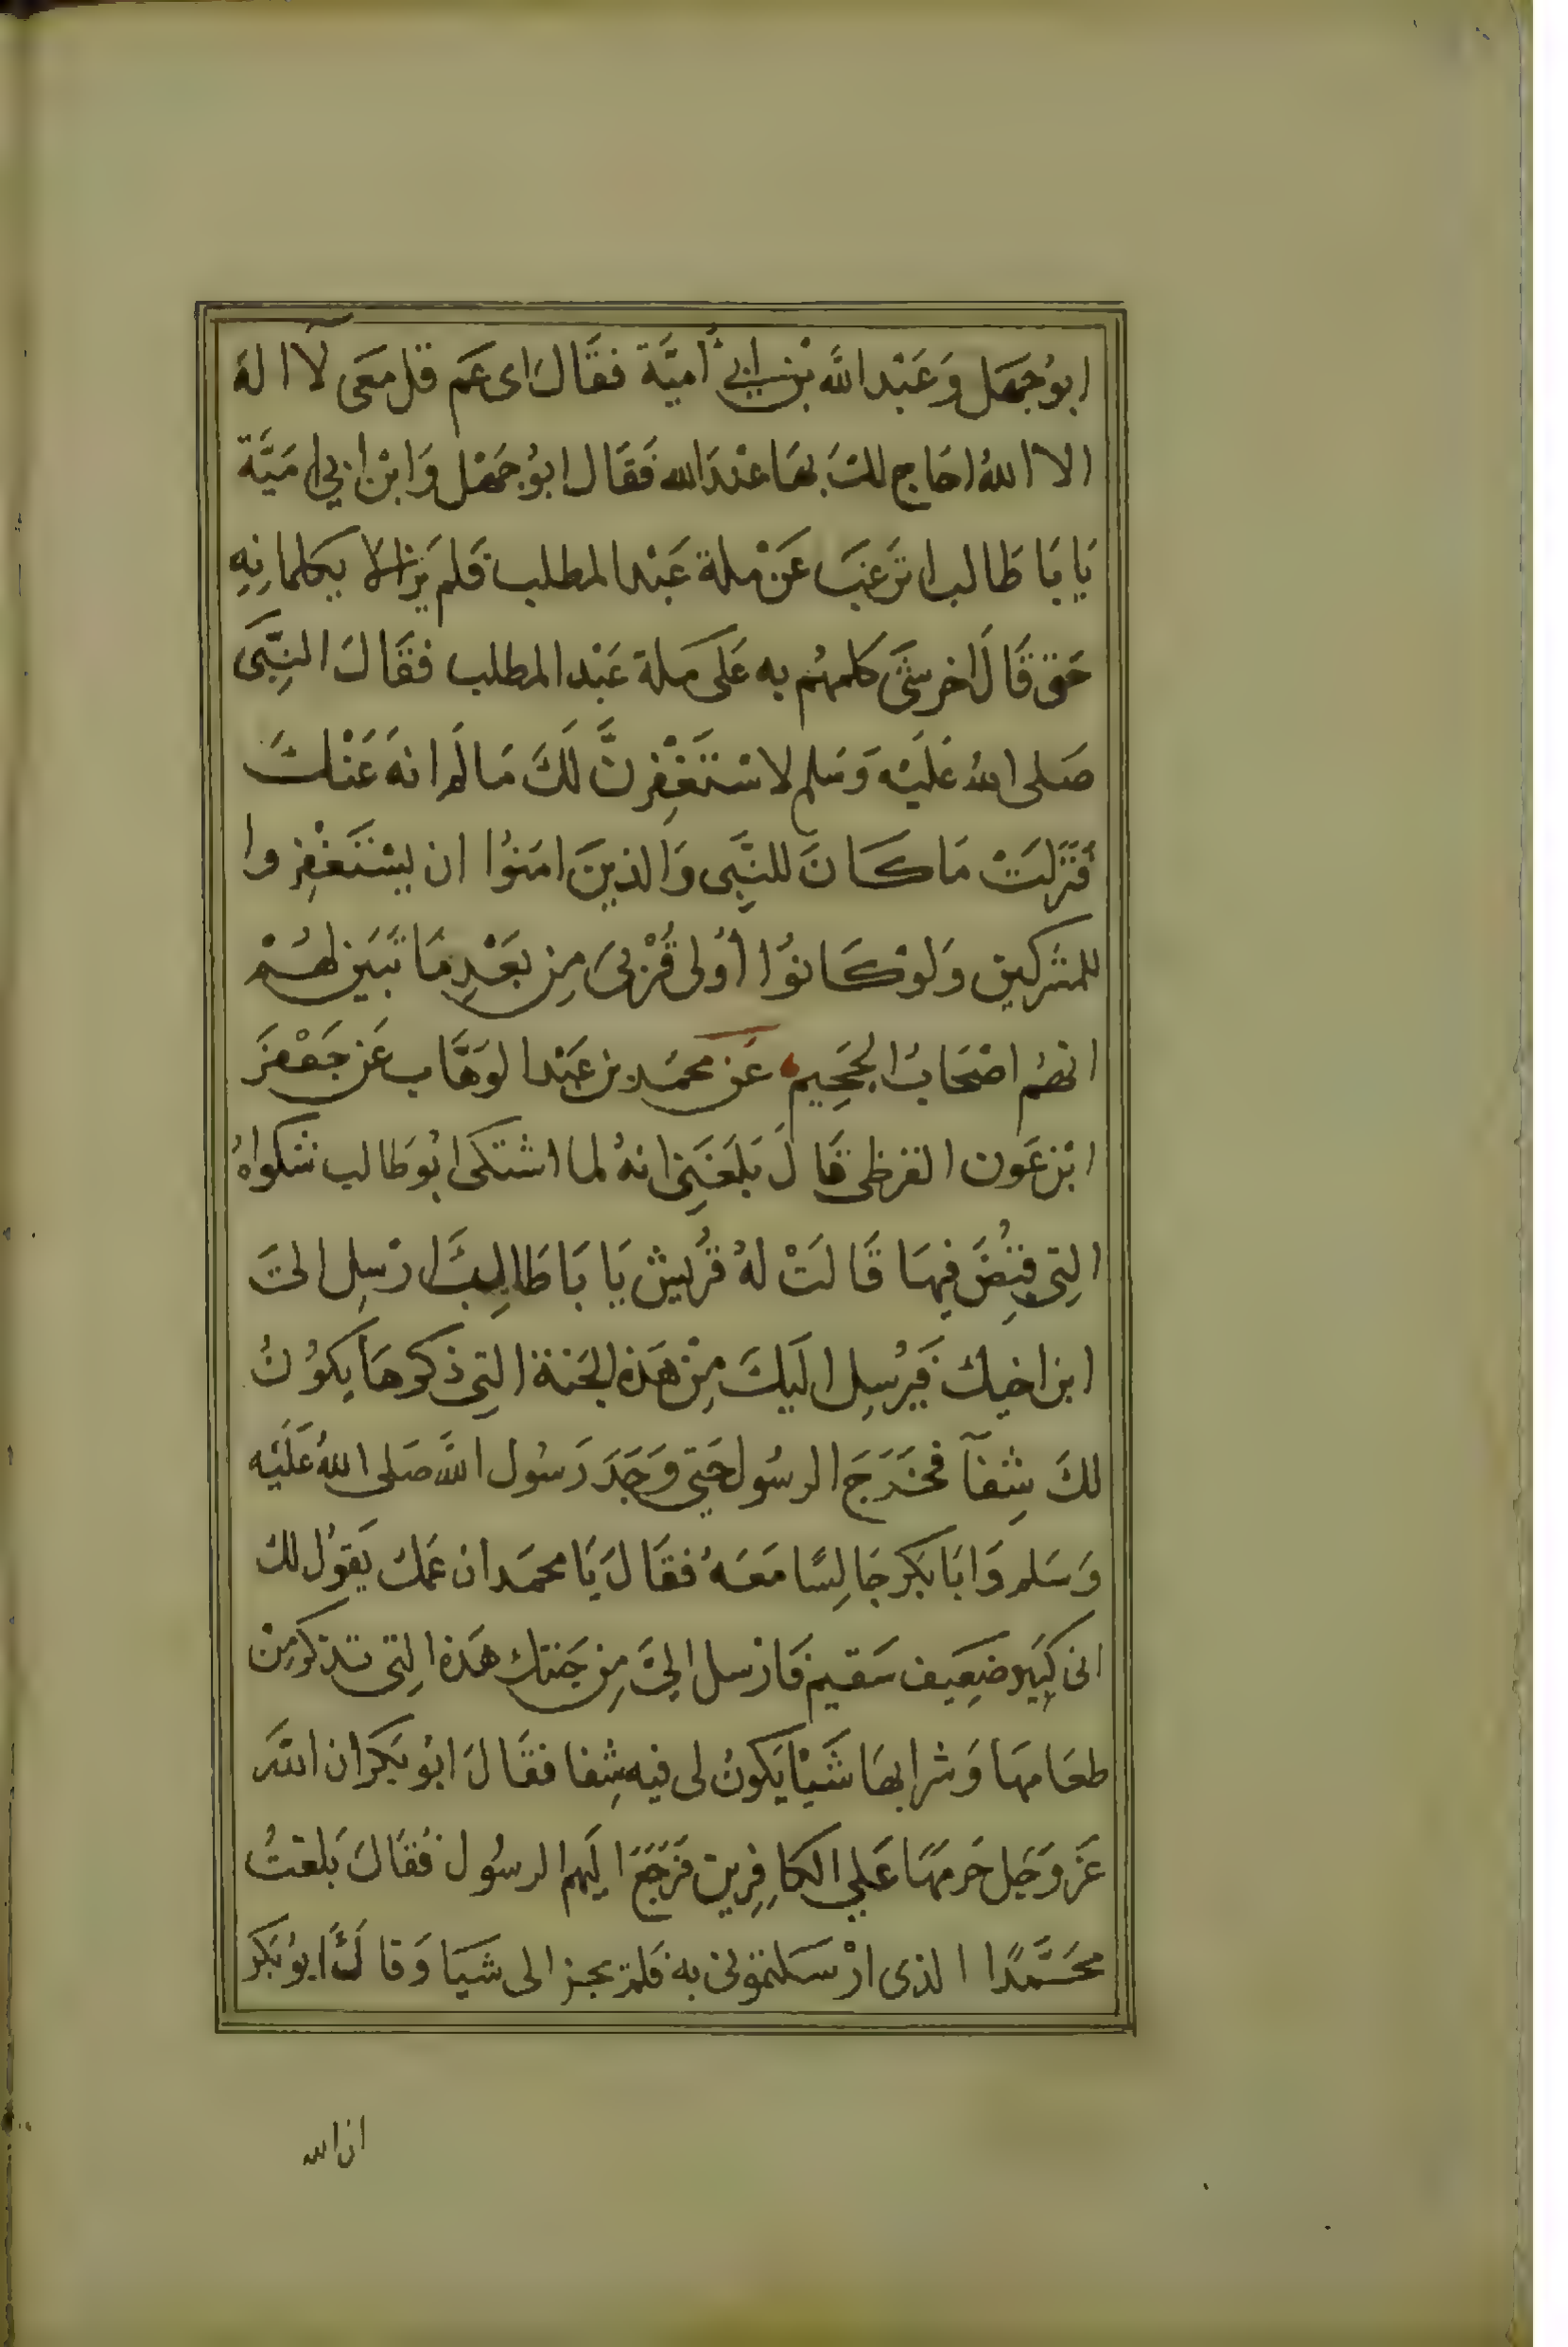 ابوُجَهَل وَعَبْد اللَّه بْن ابي أميَّة فقَالَ اى عَم قل معَى لآ اله
الا اللهُ احَاج لكَ بهَا عنْدَ الله فَقَال ابوُ جَهْل وَابْن ابي اميَّة
يَا بَا طَالب اترَغبَ عَنْ ملة عَبْد المطلب فَلم يَزالا يكلمانِهِ
حَتى قَالَ اخر شَئ كلمهُم به عَلى مَلة عَبْد المطلب فَقَالَ النِّبَى
صَلى اللهُ عَليْه وَسَلم لاسْتَغْفِرنَّ لَكَ مَا لَم انهَ عَنْكَ
فَنَزَلَتْ مَا كَانَ للنِّبَى وَالذينَ امَنوُا ان يسْتَغْفِروا
للمشركين وَلوْ كَانوُا أوُلى قُرْبىَ مِن بَعْدِ مَا تبَيَن لهُمْ
انهُم اصْحَابُ الجَحِيم عَن محمَد بن عَبْد الوَهَّاب عَن جَعْفَر
ابْن عَون القرظى قَالَ بَلغَنِى انهُ لما اشتكى ابوُطَالب شكواهُ
التِى قبِضَ فِيهَا قَالَتْ لهُ قُريش يَا بَا طَالِبَّ ارْسِل الىَ
ابن اخيك فَيرُسِل اليَكَ مِنْ هَذه الجَنة التِى ذكرهَا يكوُنُ
لكَ شِفآ فخَرَجَ الرسُول حَتي وَجَدَ رَسُول اللَّه صَلى اللهُ عَلَيْه
وَسَلم وَابَا بَكر جَالِسًا مَعَهُ فقَالَ يَا محمَد ان عَمك يَقوُل لك
انى كبِيَر ضَعِيَف سَقيم فَارسل الىَّ مِن جَنتك هَذه التِى تذكر مِنْ
طعَامهَا وَشرابهَا شَيْا يَكونُ لى فيه شِفا فقَالَ ابوُ بَكر ان اللَّه
عَز وَجَل حَرمهَا عَلي الكافِرِين فَرَجَعَ اليَهم الرسُول فَقَالَ بَلغتُ
محَمَّدًا الذى ارْسَلتمونى به فَلم يحر الى شيَا وَقالَ ابوُ بَكر
ان الله